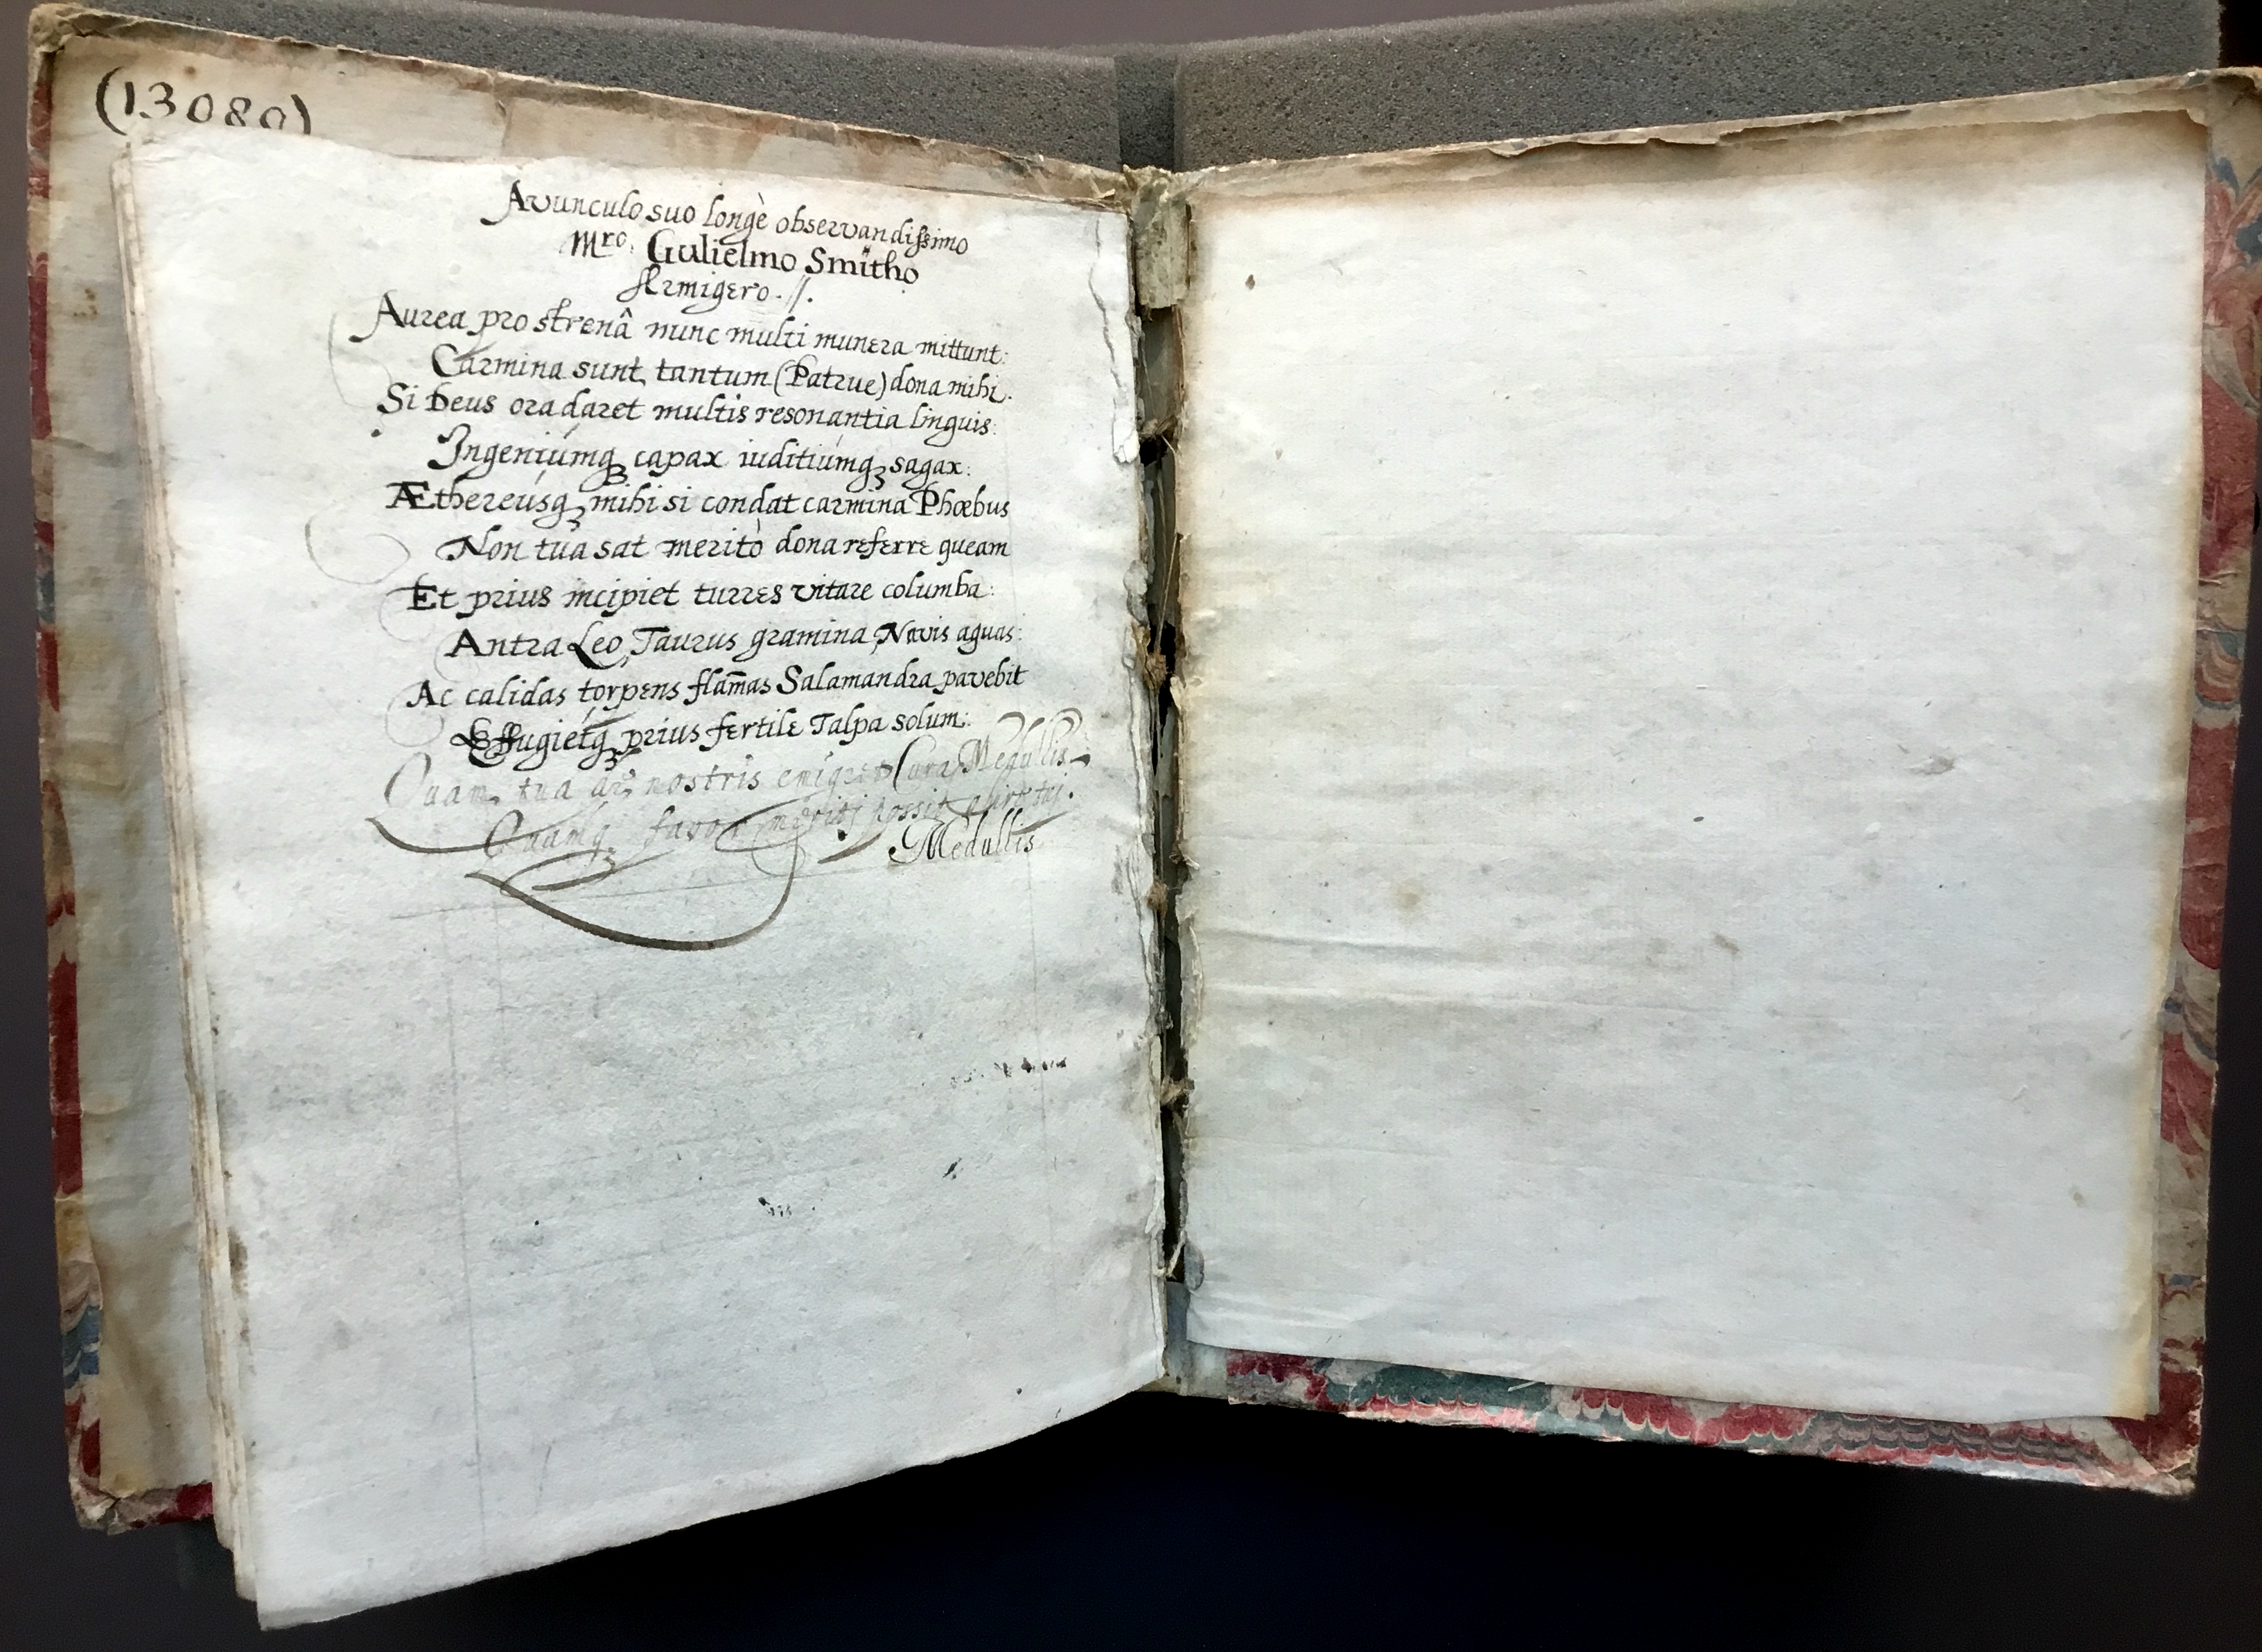 (13080)
Avunculo suo longè observandissimo
Mro. Gulielmo Smitho
Armigero.//.
Aurea pro strenâ nunc multi munera mittunt:
Carmina sunt tantum (Patrue) dona mihi.
Si Deus ora daret multis resonantia linguis:
Ingeniúmqꝫ capax iuditiúmqꝫ sagax:
Æthereúsqꝫ mihi si condat carmina Phœbus
Non tua sat meritò dona referre queam
Et prius incipiet turres vitare columba:
Antra Leo, Taurus gramina, Navis aquas:
Ac calidas torpens flam̄as Salamandra pavebit
Effugiétqꝫ prius fertile Talpa solum:
Quam tua nostris emigret Cura Medullis
Quamqꝫ favor possit
Medullis